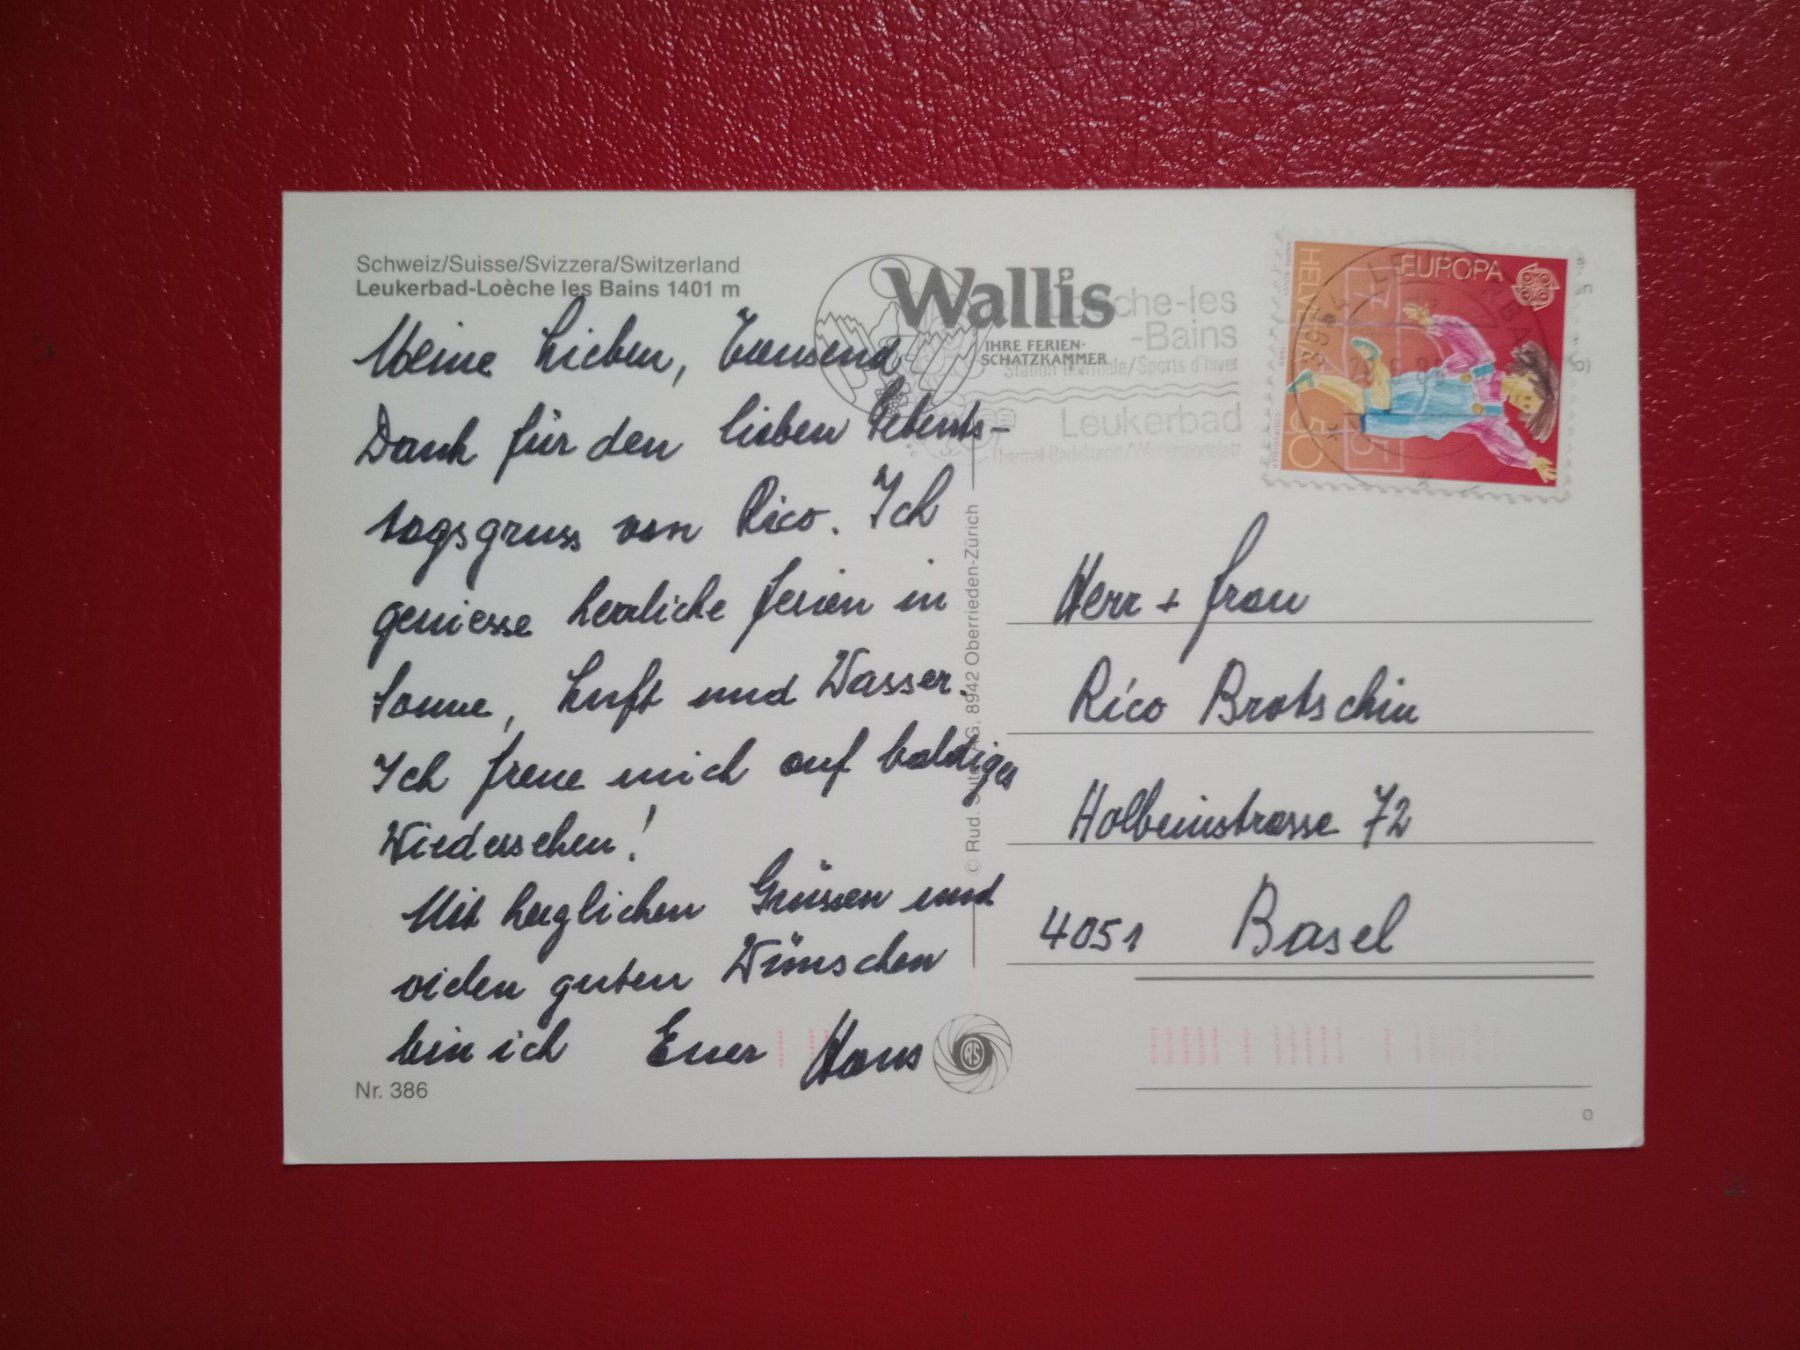 Schweiz/Suisse/Svizzera/Switzerland
Leukerbad-Loèche les Bains 1401 m
Meine Lieben, Tausend
Dank für den lieben Lebens-
tagsgruss von Rico. Ich
geniesse herrliche Ferien in
Sonne, Luft und Wasser.
Ich freue mich auf baldiges
Wiedersehen!
Mit herzlichen Grüssen und
vielen guten Wünschen
bin ich Euer Hans
Nr. 386
Wallis
IHRE FERIEN-
SCHATZKAMMER
che-les
-Bains
Station thermale/Sports d'hiver
Leukerbad
Thermal-Badekurort/Wintersportplatz
EUROPA
HELVETIA
50
© Rud. AG, 8942 Oberrieden-Zürich
Herr + Frau
Rico Brotschin
Holbeinstrasse 72
4051 Basel
RS